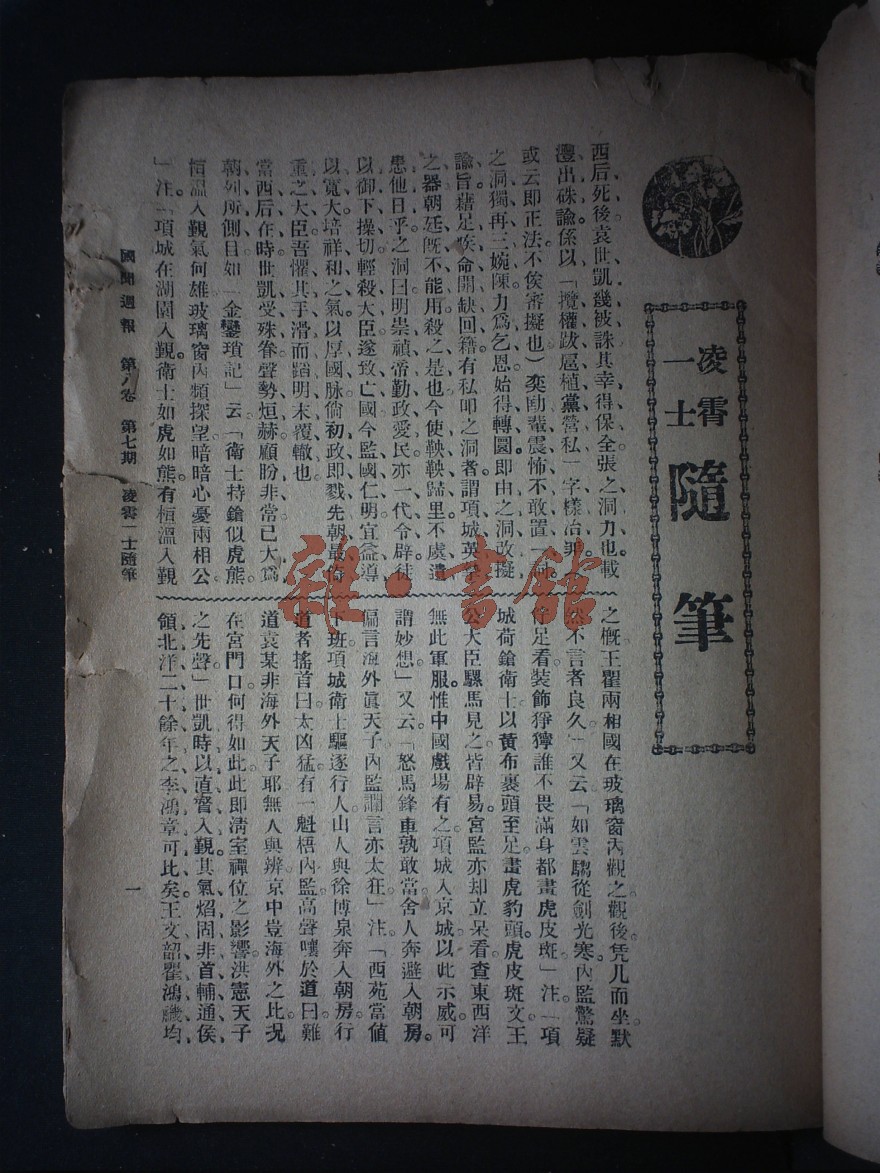 凌霄
一士
隨筆
西后死後袁世凱幾被誅其幸得保全張之洞力也載
灃出硃諭係以「攬權跋扈植黨營私」字樣治罪
或云即正法不俟審擬也）奕劻輩震怖不敢置一詞
之洞獨再三婉陳力爲乞恩始得轉圜即由之洞改擬
諭旨藉足疾命開缺回籍有私叩之洞者謂項城英挚
之器朝廷旣不能用殺之是也今使鞅鞅歸里不虞遺
患他日乎之洞曰明崇禎帝勤政愛民亦一代令辟徒
以御下操切輕殺大臣遂致亡國今監國仁明宜益導
以寬大培祥和之氣以厚國脉倘初政即戮先朝最倚
重之大臣吾懼其手滑而蹈明末覆轍也
當西后在時世凱受殊眷聲勢烜赫顧盼非常已大爲
朝列所側目如「金鑾瑣記」云「衛士持鎗似虎熊
恒溫入覲氣何雄玻璃窗內頻探望暗暗心憂兩相公
」注「項城在湖園入覲衛士如虎如熊有桓溫入覲
之概王瞿兩相國在玻璃窗內觀之觀後凭几而坐默
然不言者良久」又云「如雲騶從劍光寒內監驚疑
佇足看裝飾猙獰誰不畏滿身都畫虎皮斑」注「項
城荷鎗衛士以黃布裹頭至足畫虎豹頭虎皮斑文王
公大臣騾馬見之皆辟易宮監亦却立呆看查東西洋
無此軍服惟中國戲場有之項城入京城以此示威可
謂妙想」又云「怒馬鋒車孰敢當舍人奔避入朝房
偏言海外眞天子內監讕言亦太狂」注「西苑當値
下班項城衛士驅逐行人山人與徐博泉奔入朝房行
道者搖首曰太凶猛有一魁梧內監高聲嚷於道曰難
道袁某非海外天子耶無人與辨京中豈海外之比况
在宮門口何得如此此即清室禪位之影響洪憲天子
之先聲」世凱時以直督入覲其氣焰固非首輔通侯
領北洋二十餘年之李鴻章可比矣王文韶瞿鴻禨均
國聞週報 第八卷 第七期 凌霄一士隨筆
一
雜·書館